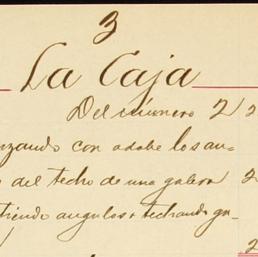 3
La Caja
Del número 2 2
nzando con adobe los an=
del techo de una galera 2
tiendo angulos i techando ga-
2